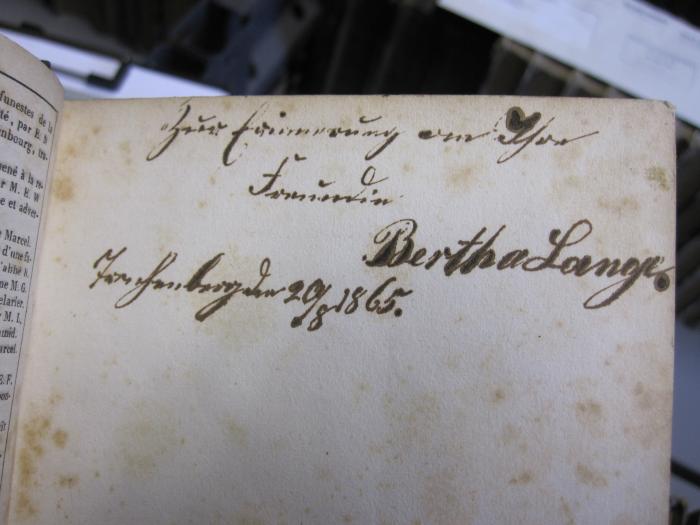 funestes de la
té, par E. S
nbourg, tra-
mené à la re-
r M. E. W
e et adver-
Marcel.
d'une fa-
l'abbé
me M. G.
M. I.
arcel.
E. F.
Zur Erinnerung an Ihre
Freundin
Bertha Lange.
Trachenberg den 29/8 1865.